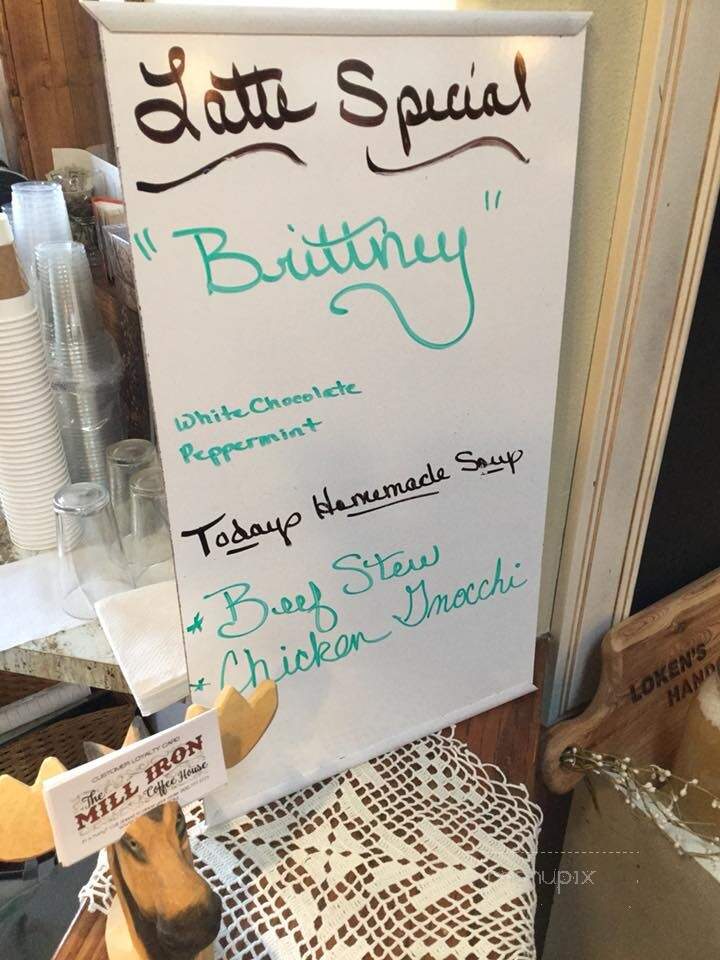 Latte Special
"Brittney"
White Chocolate
Peppermint
Todays Homemade Soup
* Beef Stew
* Chicken Gnocchi
CUSTOMER LOYALTY CARD
The
MILL IRON
Coffee House
LOKEN'S